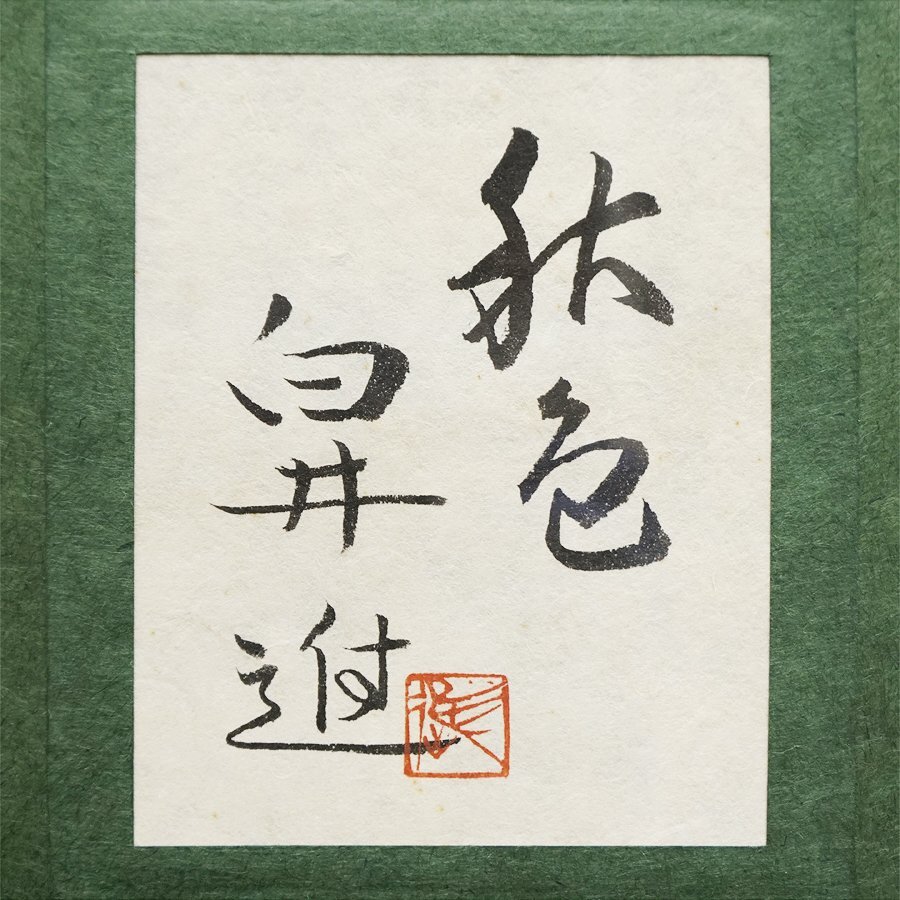 秋色
白井進